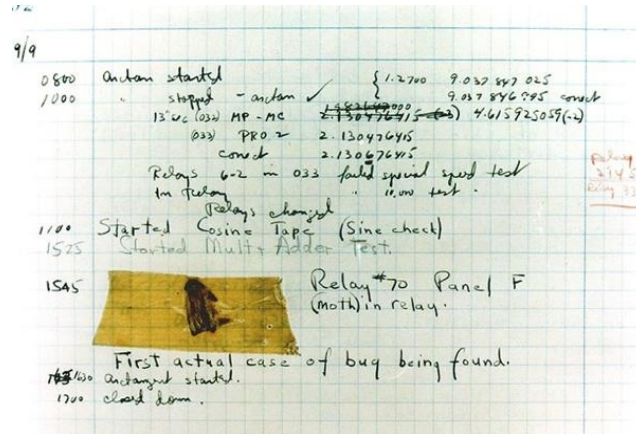 9/9
0800 Antan started
1000 " stopped - antan ✓ { 1.2700 9.037 847 025
9.037 846 995 conect
13"uc (032) MP - MC 2.130476415 (-3) 4.615925059(-2)
(033) PRO 2 2.130476415
conect 2.130676415
Relays 6-2 in 033 failed special speed test
In Relay " 11,000 test.
Relays changed
1100 Started Cosine Tape (Sine check)
1525 Started Mult + Adder Test.
1545 Relay #70 Panel F
(moth) in relay.
First actual case of bug being found.
1630 Antangent started.
1700 closed down.
Relay